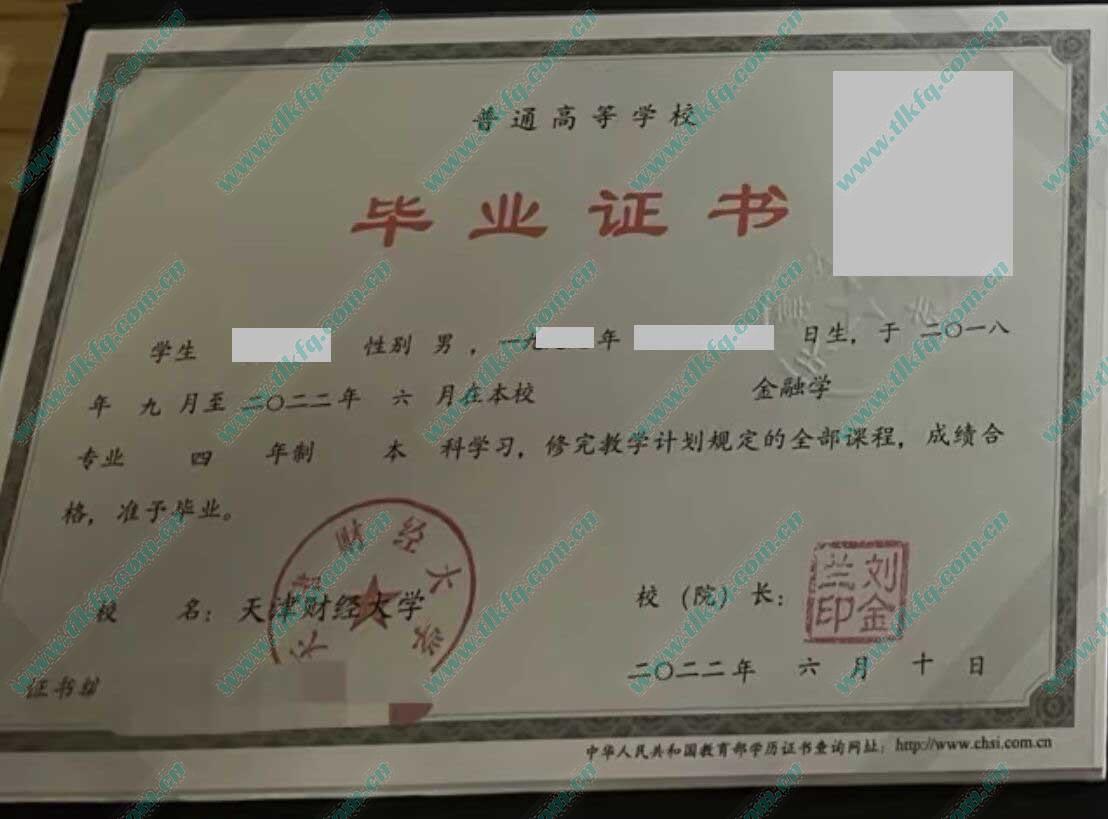 普通高等学校
毕业证书
学生 性别 男，一九 年 日生，于 二〇一八
年 九 月至 二〇二二年 六 月在本校 金融学
专业 四 年制 本 科学习，修完教学计划规定的全部课程，成绩合
格，准予毕业。
财经大学
校 名：天津财经大学
校（院）长：
刘金兰印
二〇二二年 六 月 十 日
证书编
中华人民共和国教育部学历证书查询网址：http://www.chsi.com.cn
www.tlkfq.com.cn